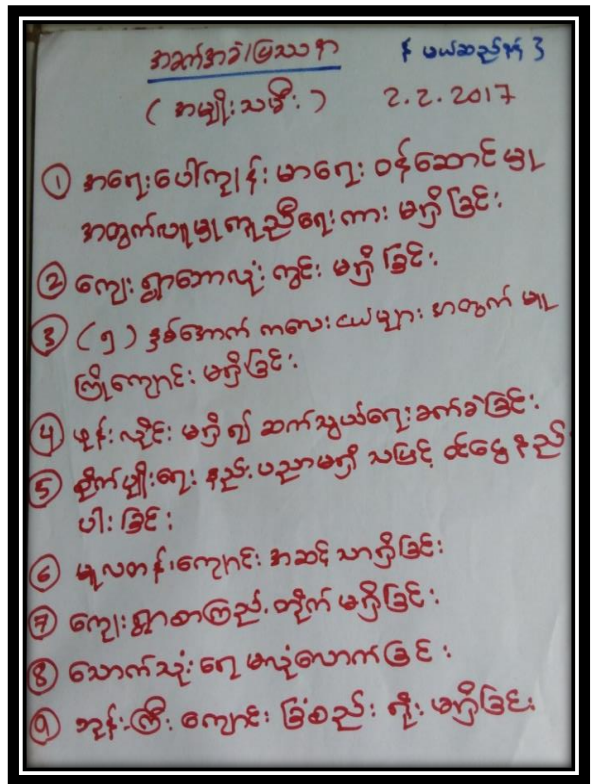 အခက်အခဲ/ပြဿနာ
(အမျိုးသမီး) 2.2.2017
① အရေးပေါ်ကျန်းမာရေး ဝန်ဆောင်မှု
အတွက်လူမှုကူညီရေးကား မရှိခြင်း
② ကျေးရွာဘောလုံးကွင်း မရှိခြင်း
③ (၅) နှစ်အောက် ကလေးငယ်များ အတွက် မူ
ကြိုကျောင်း မရှိခြင်း
④ ဖုန်းလိုင်း မရှိ၍ ဆက်သွယ်ရေးခက်ခဲခြင်း
⑤ စိုက်ပျိုးရေး နည်းပညာမရှိ သဖြင့် ဝင်ငွေနည်း
ပါးခြင်း
⑥ မူလတန်းကျောင်း အဆင့်သာရှိခြင်း
⑦ ကျေးရွာစာကြည့်တိုက် မရှိခြင်း
⑧ သောက်သုံးရေ မလုံလောက်ခြင်း
⑨ ဘုန်းကြီးကျောင်း ခြံစည်းရိုး မရှိခြင်း